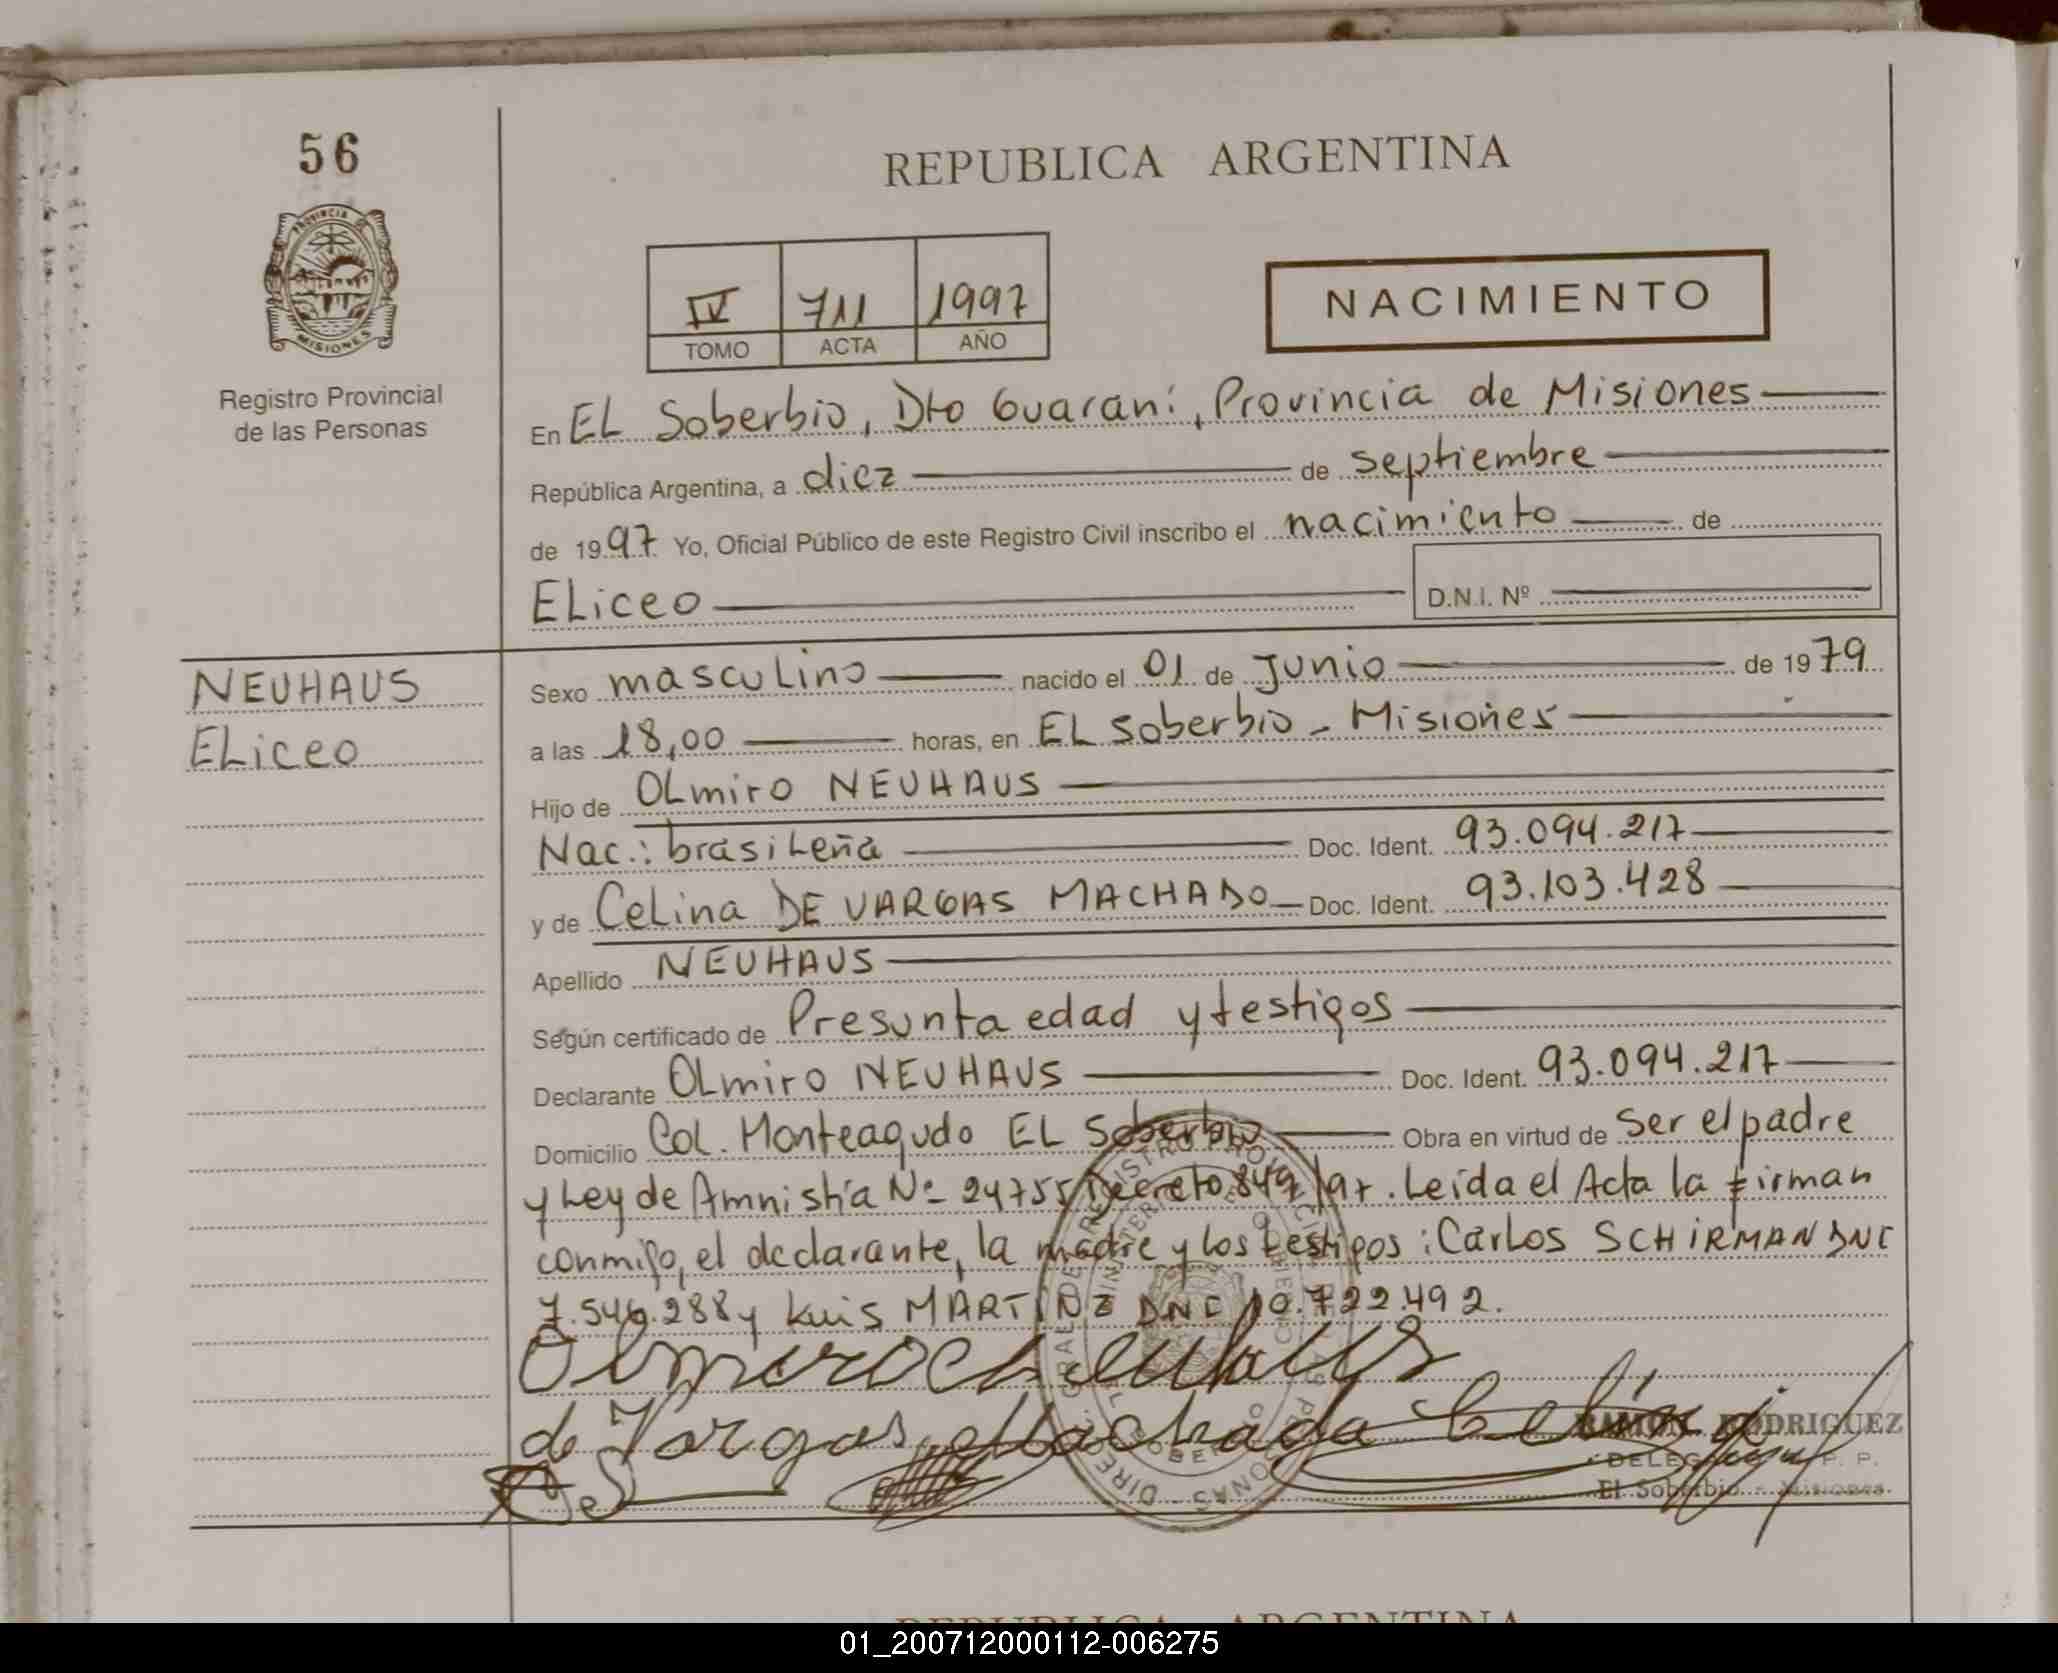 56
REPUBLICA ARGENTINA
PROVINCIA DE
MISIONES
IV 711 1997
TOMO ACTA AÑO
NACIMIENTO
Registro Provincial
de las Personas
En EL Soberbio, Dto Guaraní, Provincia de Misiones
República Argentina, a diez de septiembre
de 1997 Yo, Oficial Público de este Registro Civil inscribo el nacimiento de
ELiceo D.N.I. Nº
NEUHAUS
ELiceo
Sexo masculino nacido el 01 de Junio de 1979
a las 18,00 horas, en EL Soberbio - Misiones
Hijo de OLmiro NEUHAUS
Nac.: brasileña Doc. Ident. 93.094.217
y de Celina DE VARGAS MACHADO Doc. Ident. 93.103.428
Apellido NEUHAUS
Según certificado de Presunta edad y testigos
Declarante OLmiro NEUHAUS Doc. Ident. 93.094.217
Domicilio Col. Monteagudo EL Soberbio Obra en virtud de ser el padre
y Ley de Amnistía Nº 24755 Decreto 849/97. Leída el Acta la firman
conmigo, el declarante, la madre y los testigos: Carlos SCHIRMAN DNI
7.546.288 y Luis MARTINZ DNI 10.722.492.
Olmiro Neuhaus
de Vargas Machado Celina
RAMON RODRIGUEZ
El Soberbio - Misiones
REPUBLICA ARGENTINA
01_200712000112-006275